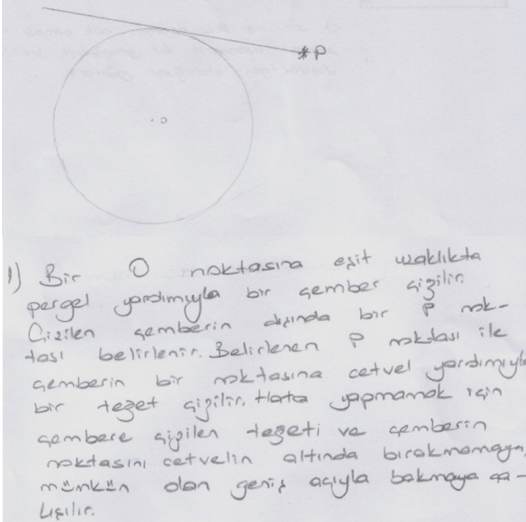 P
O
1) Bir O noktasına eşit uzaklıkta
pergel yardımıyla bir çember çizilir.
Çizilen çemberin dışında bir P nok-
tası belirlenir. Belirlenen P noktası ile
çemberin bir noktasına cetvel yardımıyla
bir teğet çizilir. Hata yapmamak için
çembere çizilen teğeti ve çemberin
noktasını cetvelin altında bırakmamaya,
mümkün olan geniş açıyla bakmaya ça-
lışılır.